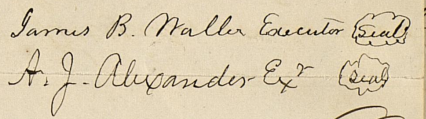 James B. Waller Executor (seal)
A. J. Alexander Exr (seal)